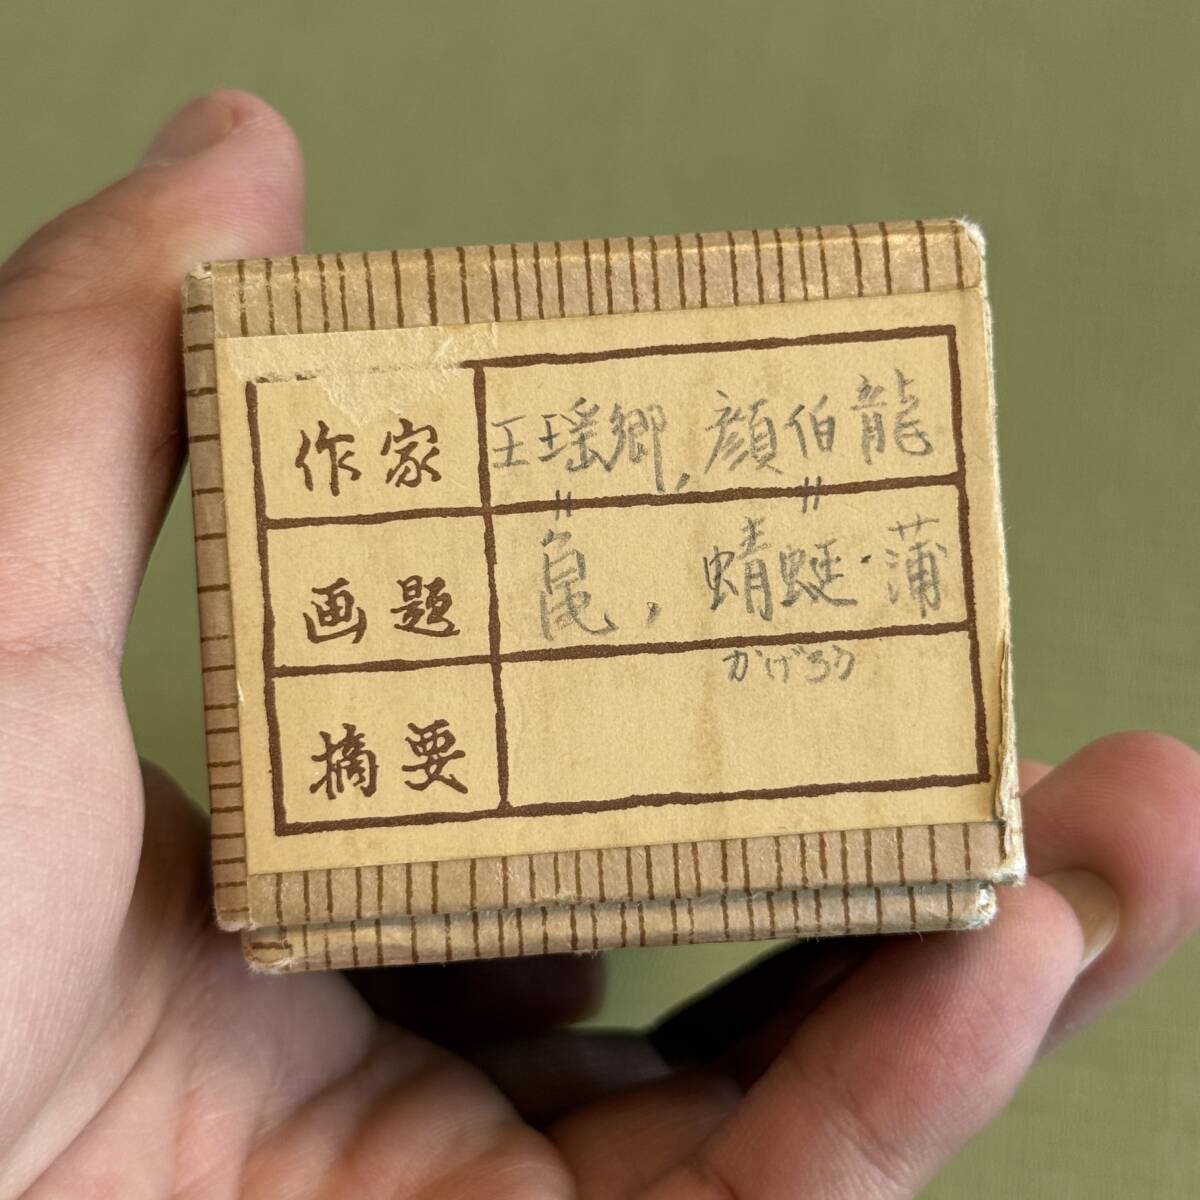 作家 王瑶卿, 顔伯龍
〃 〃
画題 亀, 蜻蜓・蒲
かげろう
摘要